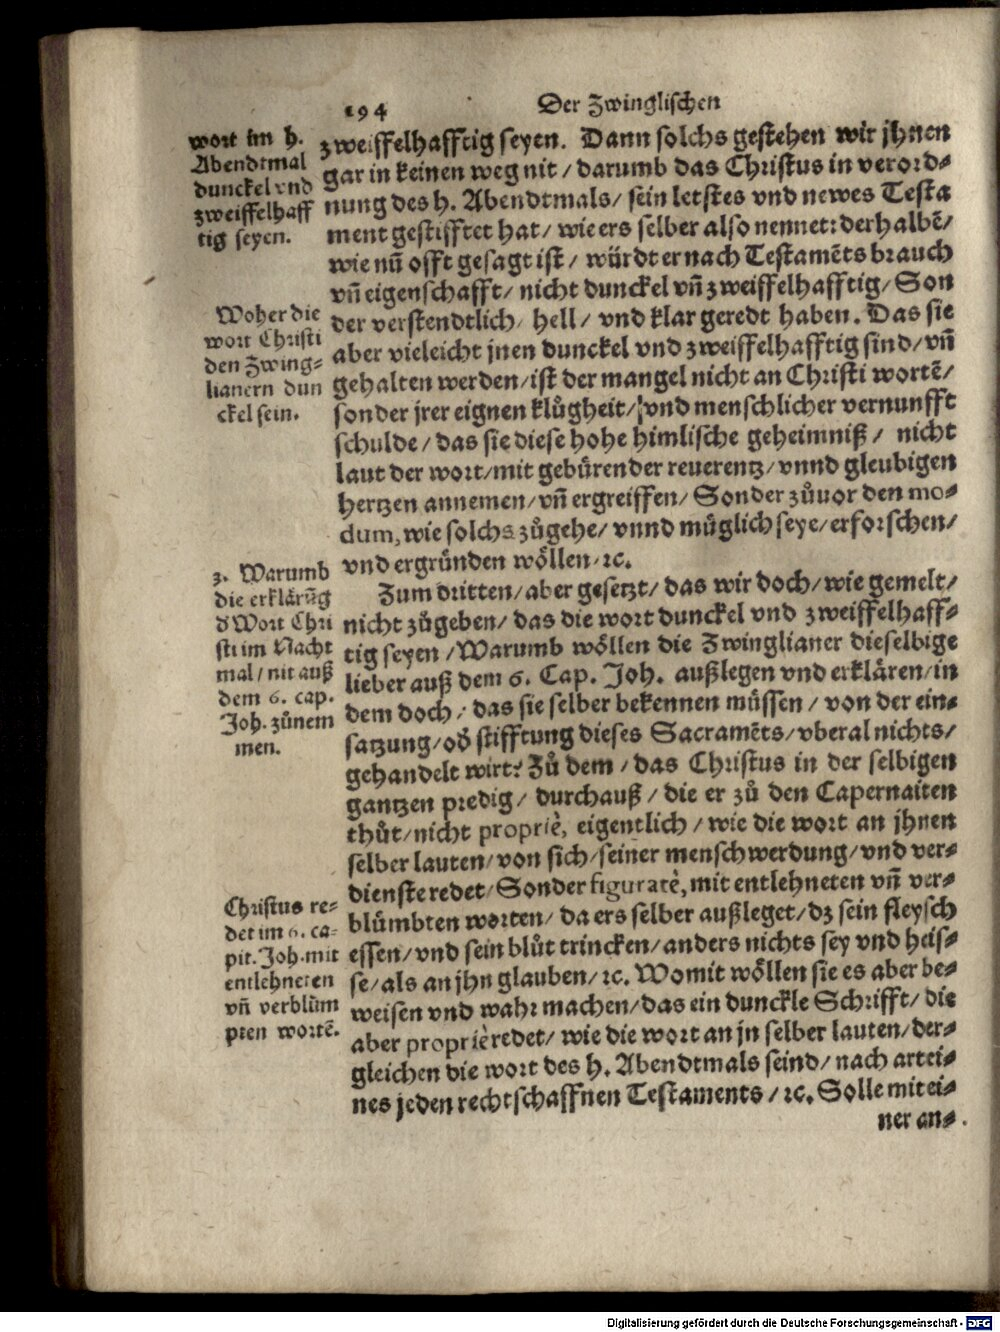 194
Der Zwinglischen
wort im h.
Abendtmal
dunckel vnd
zweiffelhaff
tig seyen.
zweiffelhafftig seyen. Dann solchs gestehen wir jhnen
gar in keinen weg nit / darumb das Christus in verord⸗
nung des h. Abendtmals / sein letstes vnd newes Testa
ment gestifftet hat / wie ers selber also nennet: derhalbẽ /
wie nũ offt gesagt ist / würdt er nach Testamẽts brauch
vñ eigenschafft / nicht dunckel vñ zweiffelhafftig / Son
der verstendtlich / hell / vnd klar geredt haben. Das sie
aber vieleicht jnen dunckel vnd zweiffelhafftig sind / vñ
gehalten werden / ist der mangel nicht an Christi wortẽ /
sonder jrer eignen klůgheit / vnd menschlicher vernunfft
schulde / das sie diese hohe himlische geheimniß / nicht
laut der wort / mit gebürender reuerentz / vnnd gleubigen
hertzen annemen / vñ ergreiffen / Sonder zůuor den mo⸗
dum, wie solchs zůgehe / vnnd müglich seye / erforschen /
vnd ergründen wöllen / ꝛc.
Woher die
wort Christi
den Zwing⸗
lianern dun
ckel sein.
Zum dritten / aber gesetzt / das wir doch / wie gemelt /
nicht zůgeben / das die wort dunckel vnd zweiffelhaff⸗
tig seyen / Warumb wöllen die Zwinglianer dieselbige
lieber auß dem 6. Cap. Joh. außlegen vnd erklären / in
dem doch / das sie selber bekennen müssen / von der ein⸗
satzung / oď stifftung dieses Sacramẽts / vberal nichts /
gehandelt wirt? Zů dem / das Christus in der selbigen
gantzen predig / durchauß / die er zů den Capernaiten
thůt / nicht propriè, eigentlich / wie die wort an jhnen
selber lauten / von sich / seiner menschwerdung / vnd ver⸗
dienste redet / Sonder figuratè, mit entlehneten vñ ver⸗
blümbten worten / da ers selber außleget / dz sein fleysch
essen / vnd sein blůt trincken / anders nichts sey vnd heis⸗
se / als an jhn glauben / ꝛc. Womit wöllen sie es aber be⸗
weisen vnd wahr machen / das ein dunckle Schrifft / die
aber propriè redet / wie die wort an jn selber lauten / der⸗
gleichen die wort des h. Abendtmals seind / nach art ei⸗
nes jeden rechtschaffnen Testaments / ꝛc. Solle mit ei⸗
ner an⸗
3. Warumb
die erklärũg
ď Wort Chri
sti im Nacht
mal / nit auß
dem 6. cap.
Joh. zůnem
men.
Christus re⸗
det im 6. ca⸗
pit. Joh. mit
entlehneten
vñ verblüm
pten wortẽ.
Digitalisierung gefördert durch die Deutsche Forschungsgemeinschaft - DFG